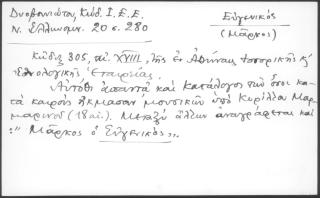 Δυοβουνιώτου, Κώδ. Ι. Ε. Ε.
Ν. Ἑλληνομν. 20 σ. 280
Εὐγενικός
(Μᾶρκος)
Κῶδιξ 305, αἰ. XVIII, τῆς ἐν Ἀθήναις Ἱστορικῆς κ'
Ἐθνολογικῆς Ἑταιρείας.
Αὐτόθι ἅπαντα καὶ Κατάλογος τῶν ὅσοι κα-
τὰ καιροὺς ἤκμασαν μουσικῶν ὑπὸ Κυρίλλου Μαρ-
μαρινοῦ (18 αἰ.). Μεταξὺ ἄλλων ἀναγράφεται καὶ
:" Μᾶρκος ὁ Εὐγενικός".